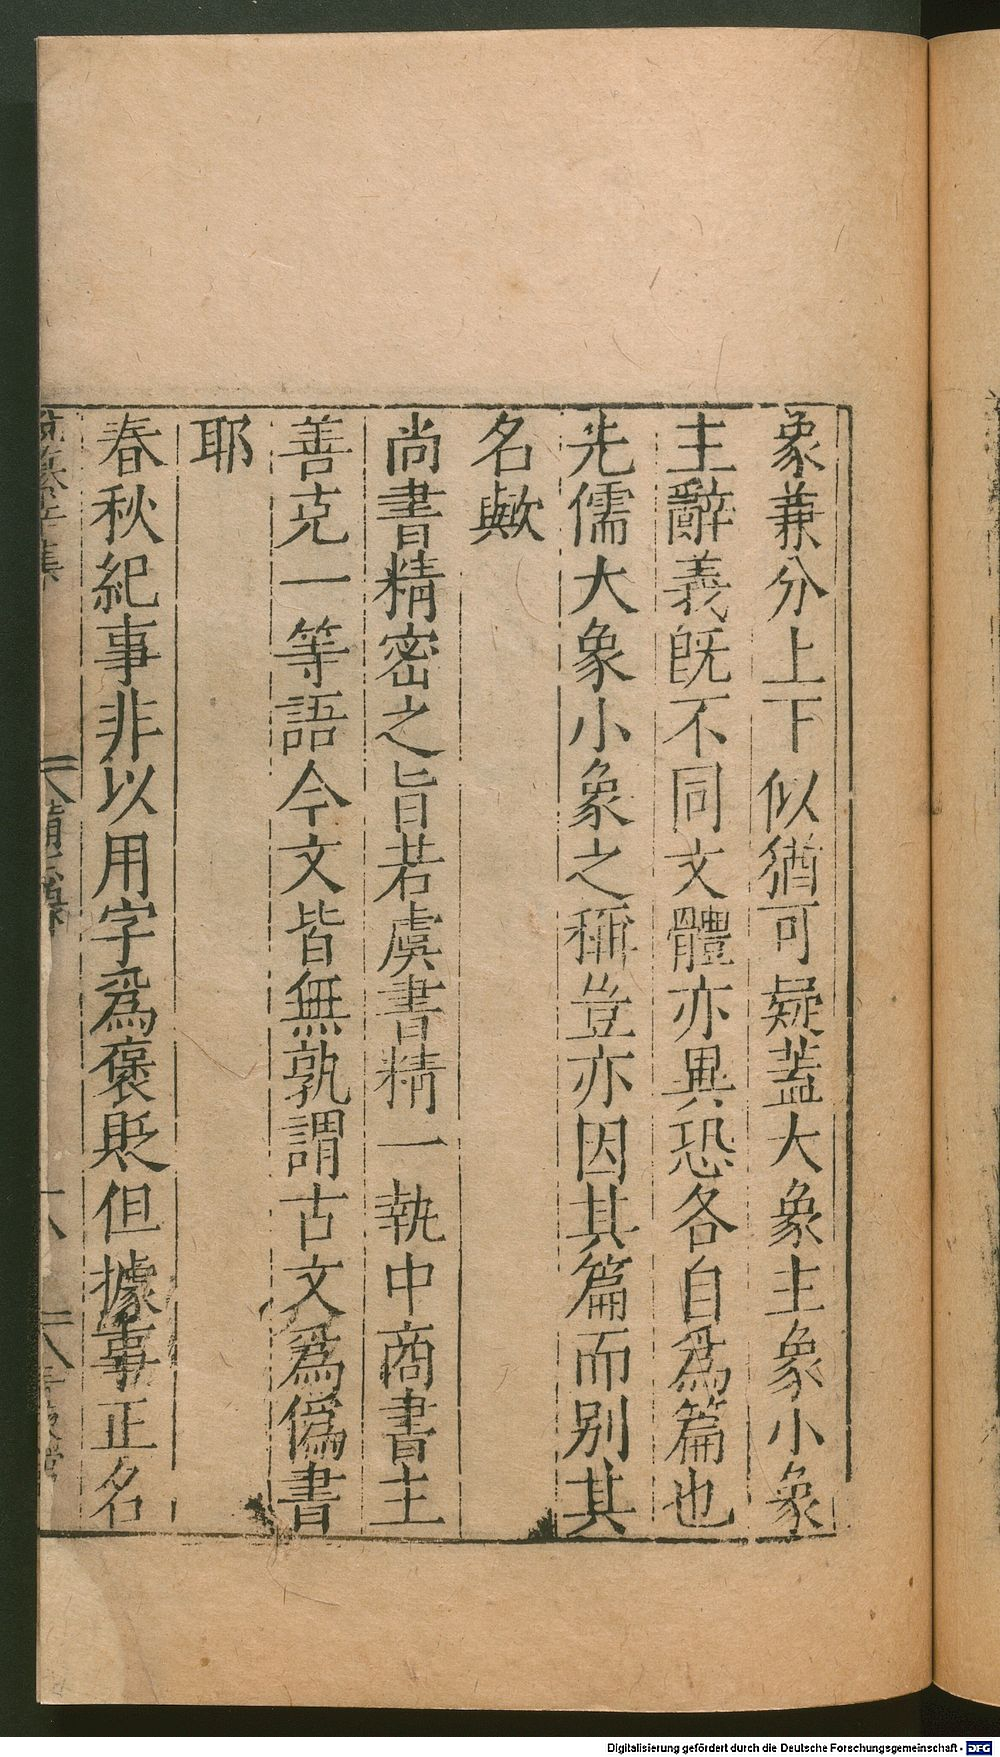 象兼分上下似猶可疑蓋大象主象小象
主辭義旣不同文體亦異恐各自爲篇也
先儒大象小象之稱豈亦因其篇而别其
名歟
尚書精密之旨若虞書精一執中商書主
善克一等語今文皆無孰謂古文爲僞書
耶
春秋紀事非以用字爲褒貶但據事正名
Digitalisierung gefördert durch die Deutsche Forschungsgemeinschaft - DFG